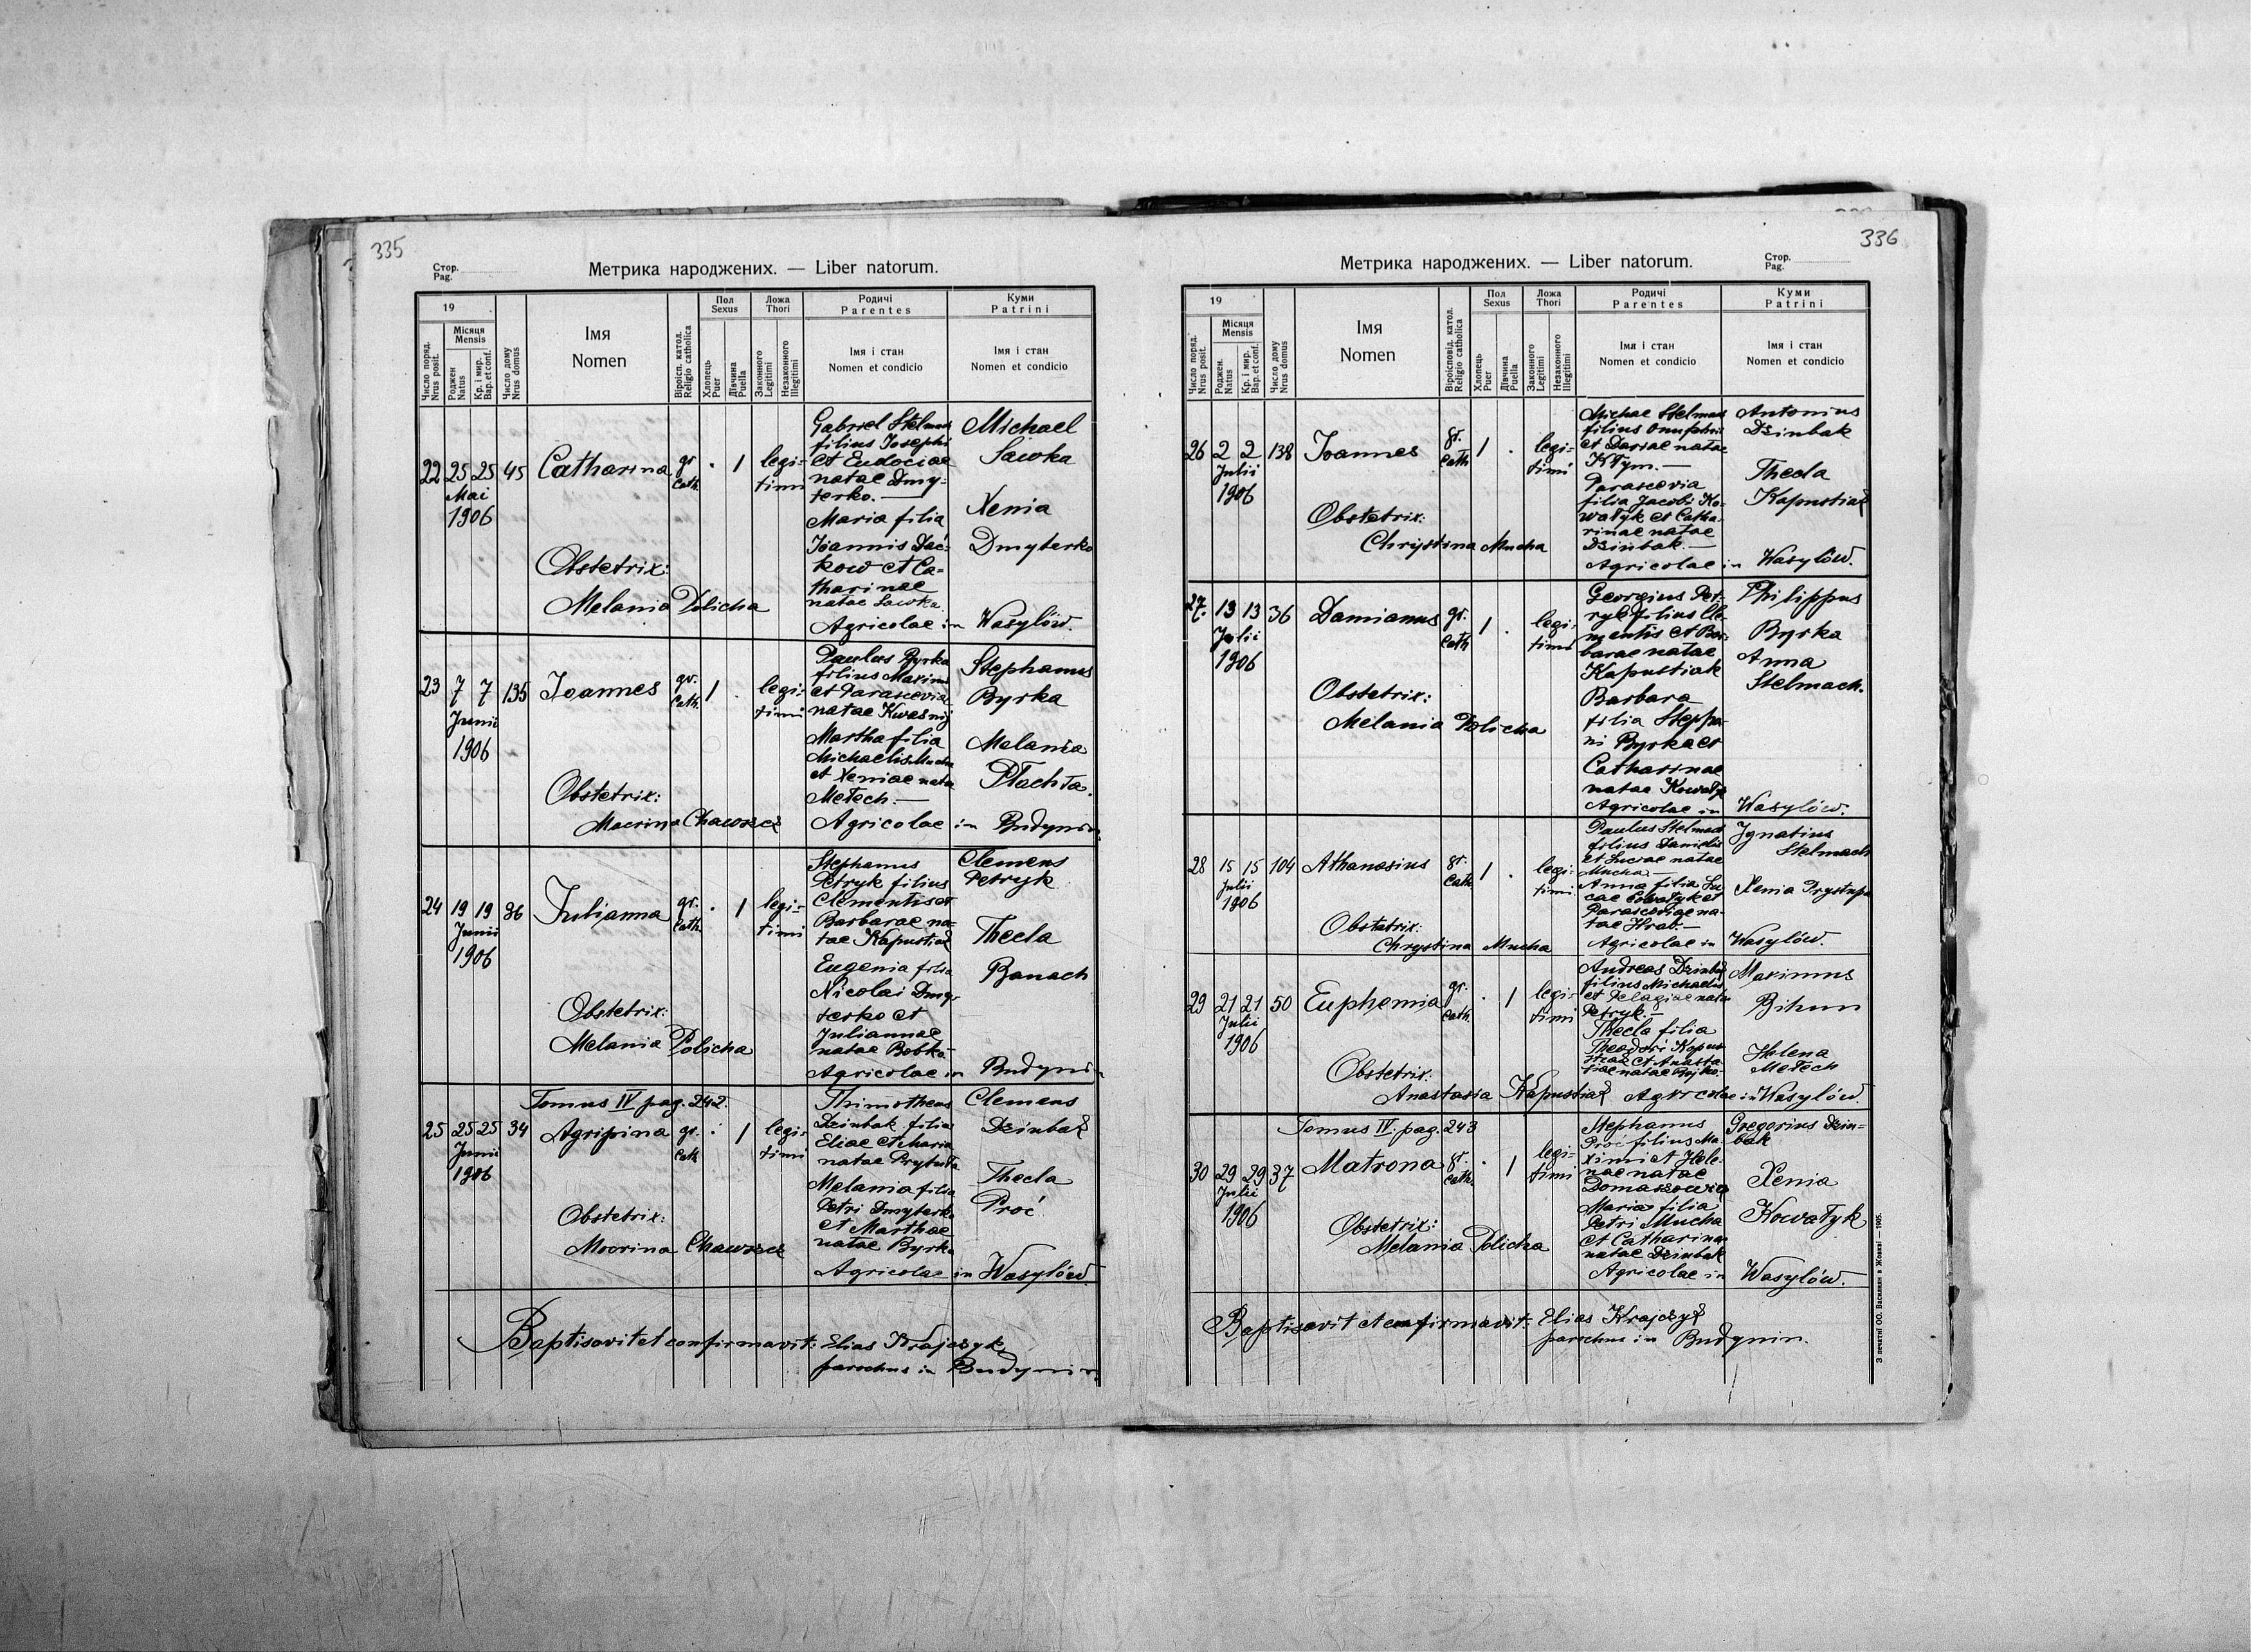 335
Стор.
Pag.
Метрика народжених. — Liber natorum.
19
Місяця
Mensis
Число поряд.
Nrus posit.
Роджен
Natus
Кр. і мир.
Bap. et conf.
Число дому
Nrus domus
Імя
Nomen
Віроісп. катол.
Religio catholica
Пол
Sexus
Хлопець
Puer
Дївчина
Puella
Ложа
Thori
Законного
Legitimi
Незаконного
Illegitimi
Родичі
Parentes
Імя і стан
Nomen et condicio
Куми
Patrini
Імя і стан
Nomen et condicio
22 25 25 45 Catharina gr. cath. . 1 legi-
timi
Mai
1906
Gabriel Stelmach
filius Josephi
et Eudociae
natae Dmy-
terko. —
Maria filia
Joannis Dać-
kow et Ca-
tharinae
natae Sawka
Agricolae in Wasylów.
Michael
Sawka
Xenia
Dmyterko
Obstetrix:
Melania Policha
23 7 7 135 Joannes gr. cath. 1 . legi-
timi
Junii
1906
Paulus Byrka
filius Maximi
et Parascevia
natae Kwasnij
Martha filia
Michaelis Mucha
et Xeniae natae
Metech. —
Agricolae in Budynin
Stephanus
Byrka
Melania
Płachta.
Obstetrix:
Macrina
24 19 19 36 Julianna gr. cath. . 1 legi-
timi
Junii
1906
Stephanus
Petryk filius
Clementis et
Barbarae na-
tae Kapustiak
Eugenia filia
Nicolai Dmy-
terko et
Juliannae
natae Bobko
Agricolae in Budynin
Clemens
Petryk
Thecla
Banach
Obstetrix:
Melania Policha
Tomus IV pag. 242.
25 25 25 34 Agripina gr. cath. . 1 legi-
timi
Junii
1906
Thimotheus
Dziubak filius
Eliae et Maria
natae Prytuła
Melania filia
Petri Dmyterko
et Marthae
natae Byrka
Agricolae in Wasylów.
Clemens
Dziubak
Thecla
Proć
Obstetrix:
Baptisavit et confirmavit: Elias Krajczyk
parochus in Budynin
336
Стор.
Pag.
Метрика народжених. — Liber natorum.
19
Місяця
Mensis
Число поряд.
Nrus posit.
Роджен.
Natus
Кр. і мир.
Bap. et conf.
Число дому
Nrus domus
Імя
Nomen
Віроісповід. катол.
Religio catholica
Пол
Sexus
Хлопець
Puer
Дївчина
Puella
Ложа
Thori
Законного
Legitimi
Незаконного
Illegitimi
Родичі
Parentes
Імя і стан
Nomen et condicio
Куми
Patrini
Імя і стан
Nomen et condicio
26 2 2 138 Joannes gr. cath 1 . legi-
timi
Julii
1906
Michae Stelmach
filius Onuphrii
et Dariae natae
Kłym. —
Parascevia
filia Jacobi Ko-
wałyk et Catha-
rinae natae
Dziubak. —
Agricolae in Wasylów.
Antonius
Dziubak
Thecla
Kapustiak
Obstetrix:
Chrystina Mucha
27. 13 13 36 Damianus gr. cath 1 . legi-
timi
Julii
1906
Georgius Pet-
ryk filius Cle-
mentis et Bar-
barae natae
Kapustiak
Barbara
filia Stepha-
ni Byrka et
Catharinae
natae Kowałyk
Agricolae in Wasylów.
Philippus
Byrka
Anna
Stelmach.
Obstetrix:
Melania Policha
28 15 15 104 Athanasius gr. cath 1 . legi-
timi
Julii
1906
Paulus Stelmach
filius Danielis
et Luciae natae
Mucha —
Anna filia Lu-
cae Kowałyk et
Parasceviae na-
tae Hrab. —
Agricolae in Wasylów.
Ignatius
Stelmach
Xenia Prystupa
Obstetrix:
Chrystina Mucha
29 21 21 50 Euphemia gr. cath. . 1 legi-
timi
Julii
1906
Andreas Dziubak
filius Michaelis
et Pelagiae natae
Petryk. —
Thecla filia
Theodori Kapus-
tiak et Anasta-
siae natae Bojko.
Maximus
Bihun
Helena
Metech
Obstetrix:
Anastasia Kapustiak Agricolae in Wasylów.
Tomus IV. pag. 243
30 29 29 37 Matrona gr. cath. . 1 legi-
timi
Julii
1906
Stephanus
Proć filius Ma-
ximi et Hele-
nae natae
Maria filia
Petri Mucha
et Catharinae
natae Dziubak
Agricolae in Wasylów.
Gregorius Dziu-
bak
Xenia
Kowałyk
Obstetrix:
Melania Policha
Baptisavit et confirmavit: Elias Krajczyk
parochus in Budynin.
З печатнї ОО. Василиян в Жовкві — 1905.